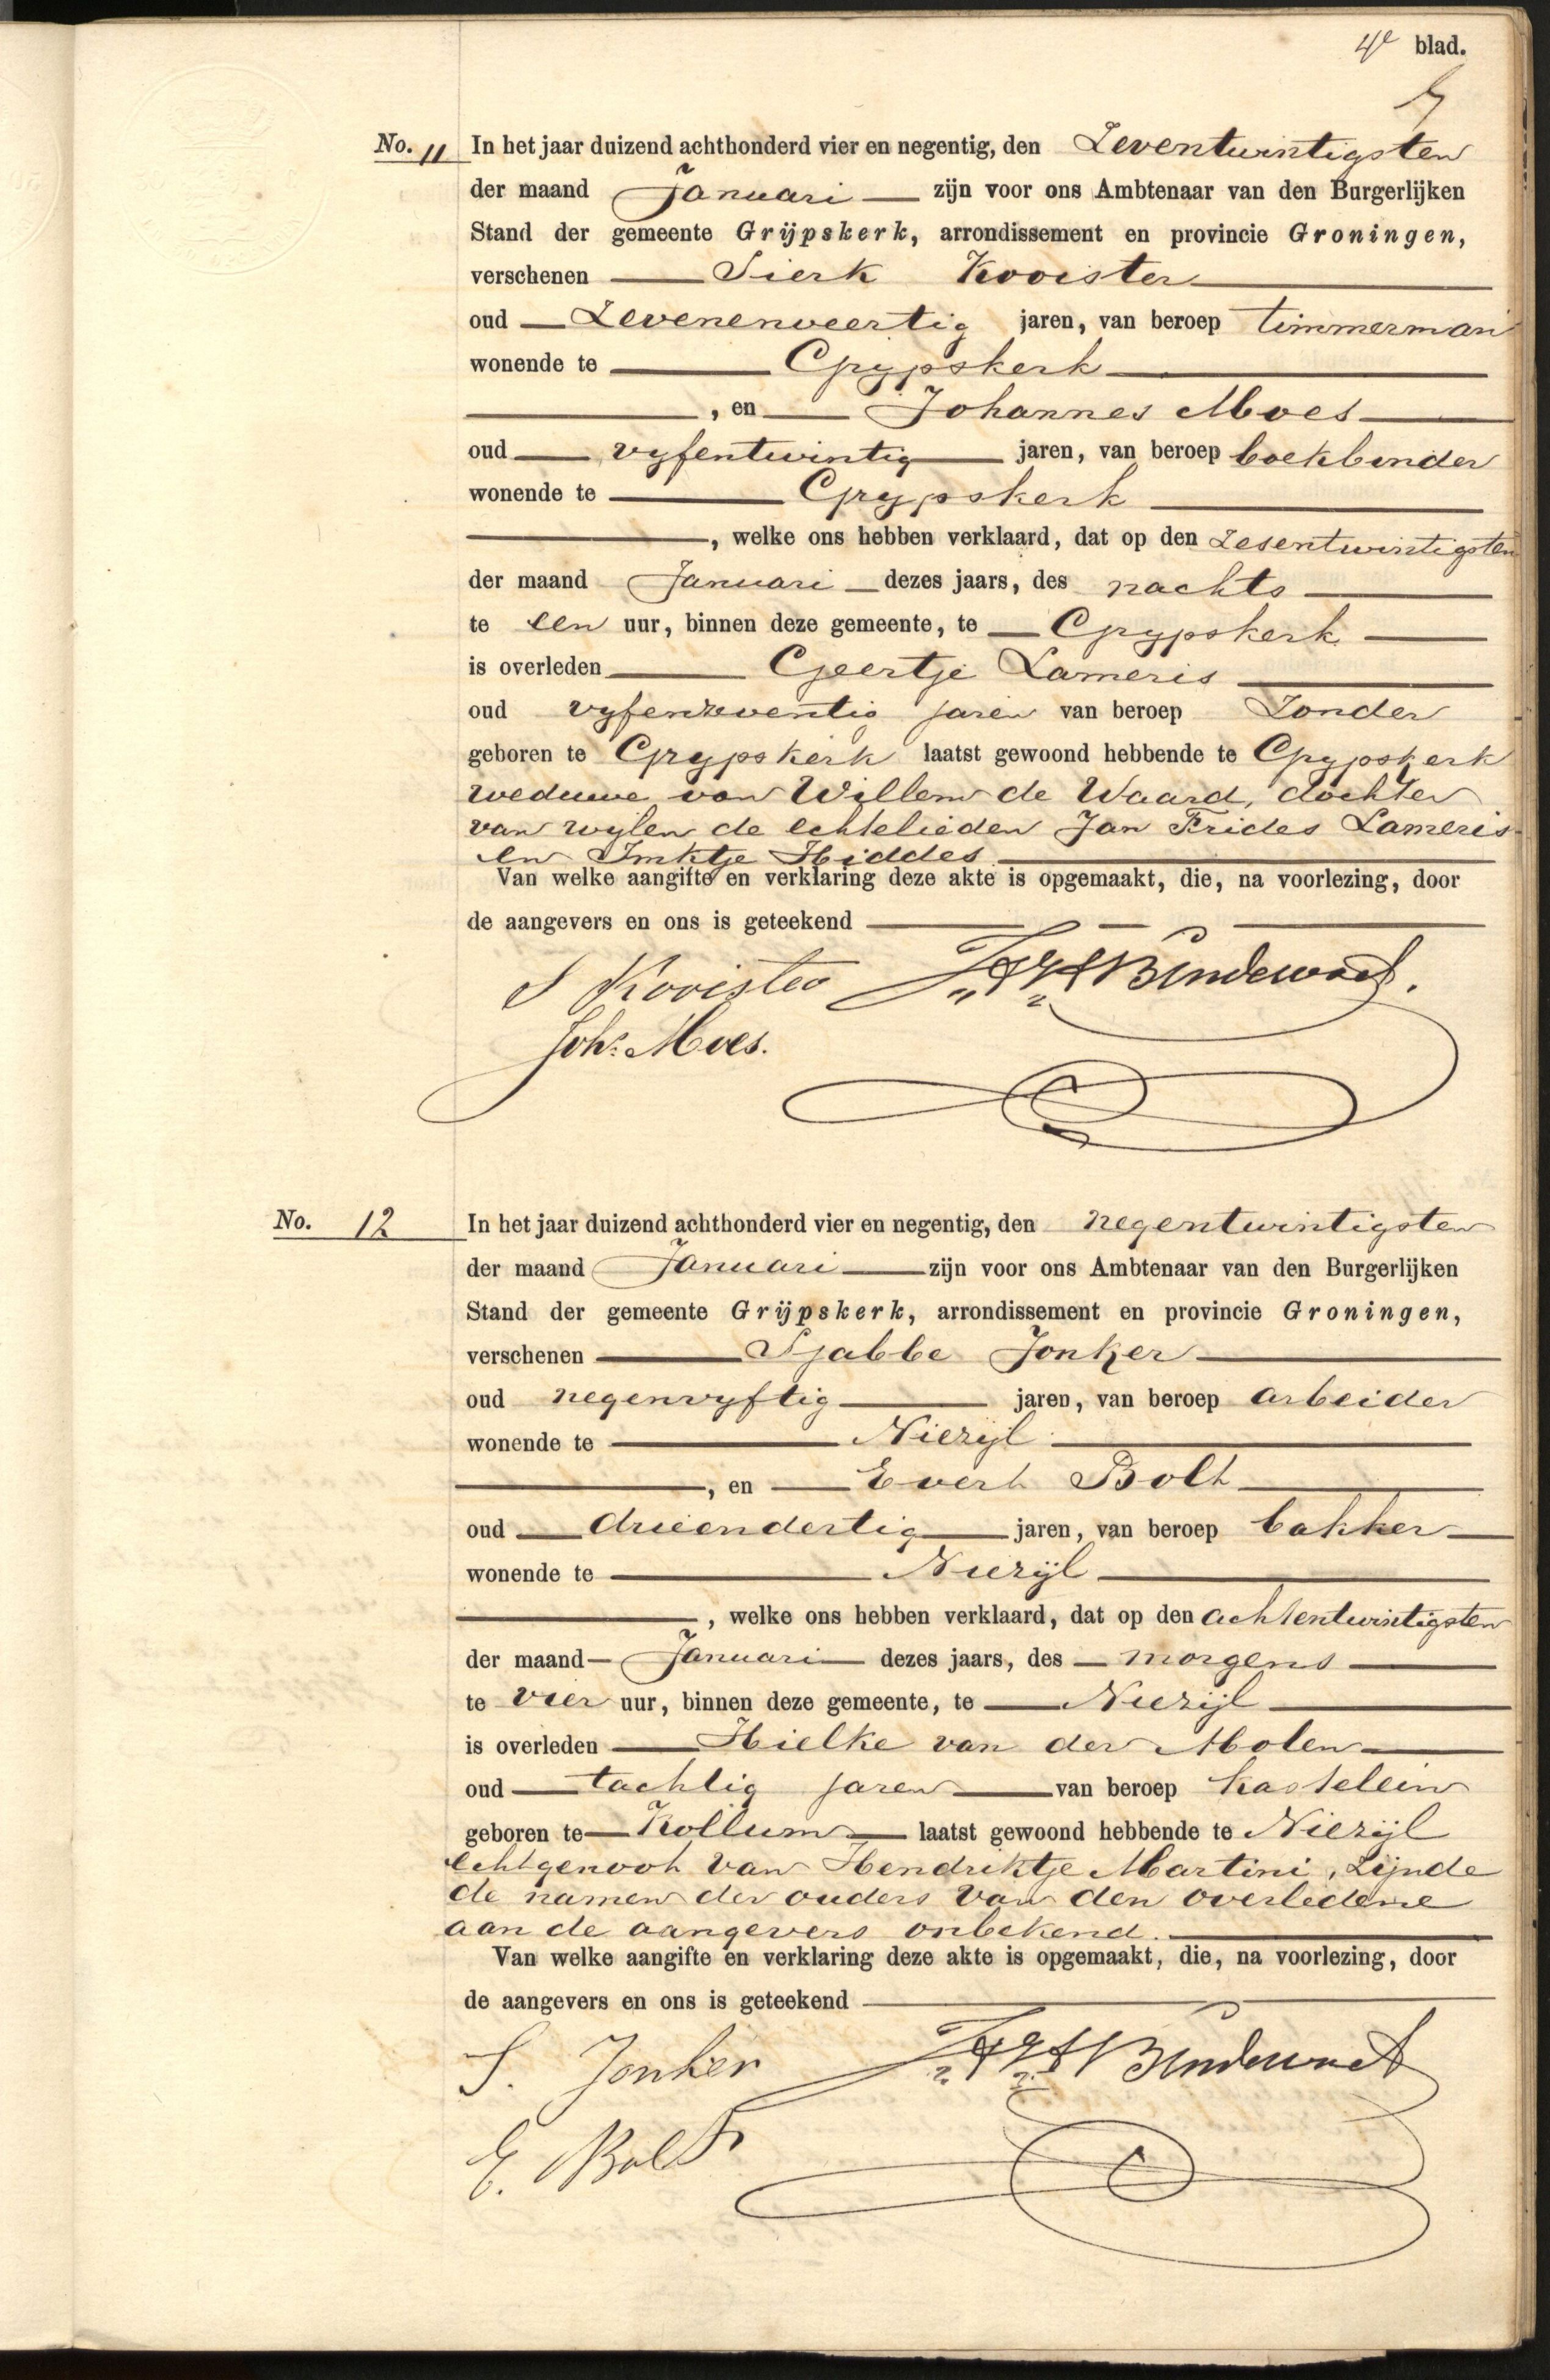 4e blad.
No. 11 In het jaar duizend achthonderd vier en negentig, den Zeventwintigsten
der maand Januari zijn voor ons Ambtenaar van den Burgerlijken
Stand der gemeente Grijpskerk, arrondissement en provincie Groningen,
verschenen Sierk Kooister
oud Zevenenveertig jaren, van beroep timmerman
wonende te Grypskerk
, en Johannes Moes
oud vyfentwintig jaren, van beroep boekbinder
wonende te Grypskerk
, welke ons hebben verklaard, dat op den Zesentwintigsten
der maand Januari dezes jaars, des nachts
te een uur, binnen deze gemeente, te Grypskerk
is overleden Geertje Lameris
oud vyfenzeventig jaren van beroep Zonder
geboren te Grypskerk laatst gewoond hebbende te Grypskerk
weduwe van Willem de Waard, dochter
van wylen de echtelieden Jan Frides Lameris
en Imktje Hiddes
Van welke aangifte en verklaring deze akte is opgemaakt, die, na voorlezing, door
de aangevers en ons is geteekend
S Kooister Bindervoet.
Johs. Moes.
No. 12 In het jaar duizend achthonderd vier en negentig, den negentwintigsten
der maand Januari zijn voor ons Ambtenaar van den Burgerlijken
Stand der gemeente Grijpskerk, arrondissement en provincie Groningen,
verschenen Sjabbe Jonker
oud negenvyftig jaren, van beroep arbeider
wonende te Niezijl
, en Evert Bolt
oud drieendertig jaren, van beroep bakker
wonende te Niezijl
, welke ons hebben verklaard, dat op den achtentwintigsten
der maand Januari dezes jaars, des morgens
te vier uur, binnen deze gemeente, te Niezijl
is overleden Hielke van der Molen
oud tachtig jaren van beroep kastelein
geboren te Kollum laatst gewoond hebbende te Niezijl
echtgenoot van Hendriktje Martini, zijnde
de namen der ouders van den overledene
aan de aangevers onbekend.
Van welke aangifte en verklaring deze akte is opgemaakt, die, na voorlezing, door
de aangevers en ons is geteekend
S. Jonker Bindervoet
E. Bolt